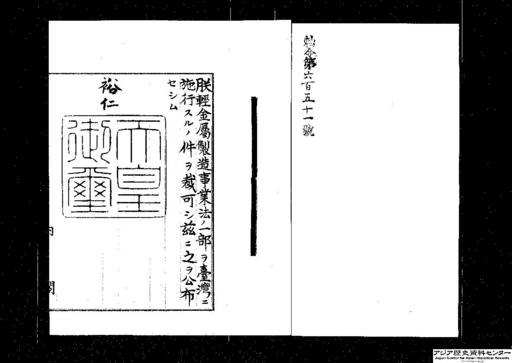 勅令第六百五十一號
朕輕金屬製造事業法ノ一部ヲ臺灣ニ
施行スルノ件ヲ裁可シ茲ニ之ヲ公布
セシム
裕仁
天皇
御璽
内閣
アジア歴史資料センター
Japan Center for Asian Historical Records